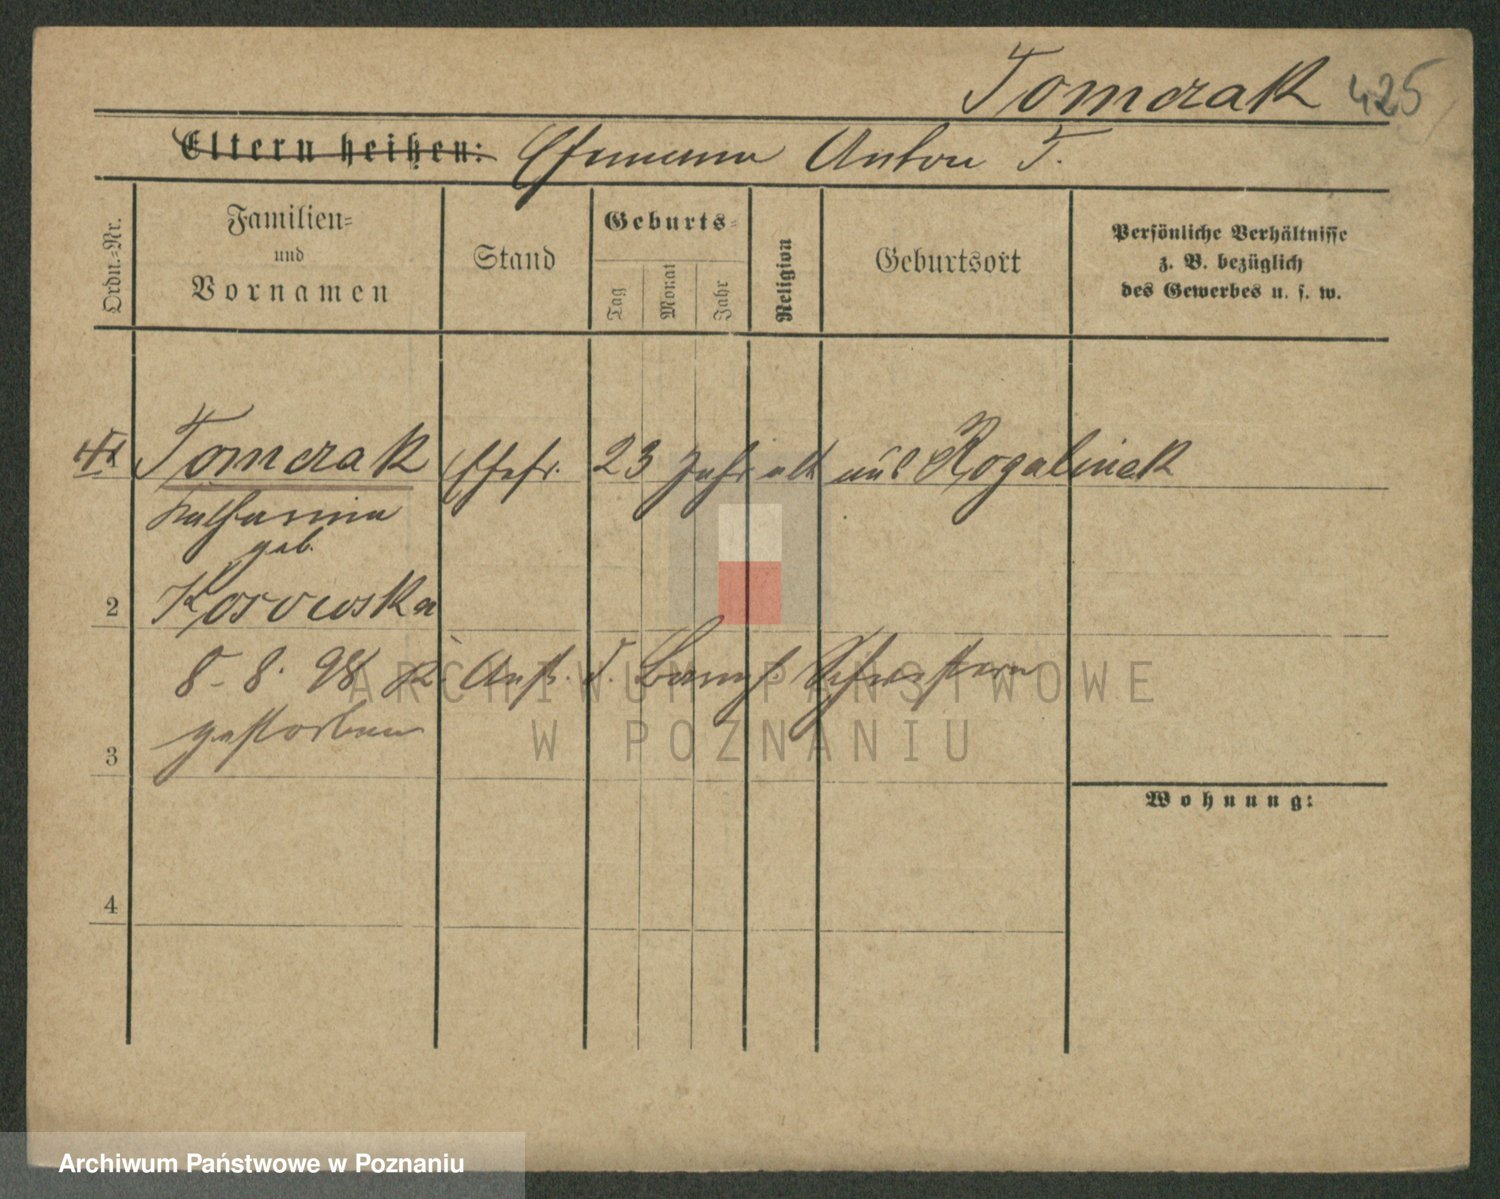 Tomczak 425
Eltern heißen: Ehemann Anton T.
Ordn.-Nr.
Familien-
und
Vornamen
Stand
Geburts-
Tag
Monat
Jahr
Religion
Geburtsort
Persönliche Verhältnisse
z. B. bezüglich
des Gewerbes u. s. w.
Tomczak Ehefr. 23 Jahr alt aus Rogalinek
Katharina
geb.
2
8. 8. 98 Anst. d. Barmh. Schwestern
gestorben
3
Wohnung:
4
ARCHIWUM PAŃSTWOWE
W POZNANIU
Archiwum Państwowe w Poznaniu